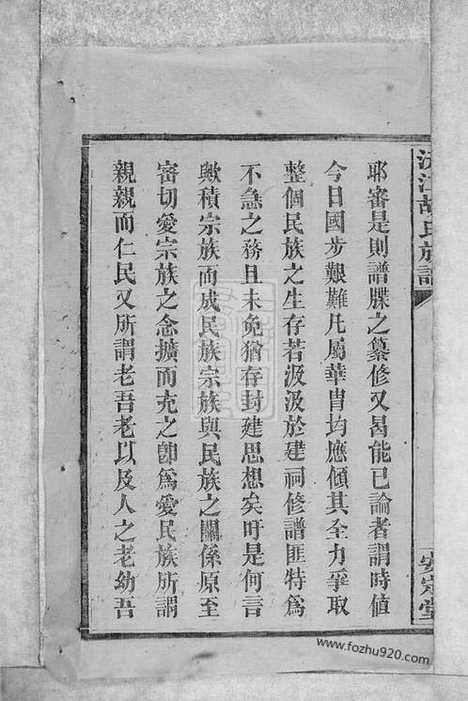 沅江胡氏族譜
安定堂
耶審是則譜牒之纂修又曷能已論者謂時値
今日國步艱難凡屬華胄均應傾其全力爭取
整個民族之生存若汲汲於建祠修譜匪特爲
不急之務且未免猶存封建思想矣吁是何言
歟積宗族而成民族宗族與民族之關係原至
密切愛宗族之念擴而充之卽爲愛民族所謂
親親而仁民又所謂老吾老以及人之老幼吾
www.fozhu920.com